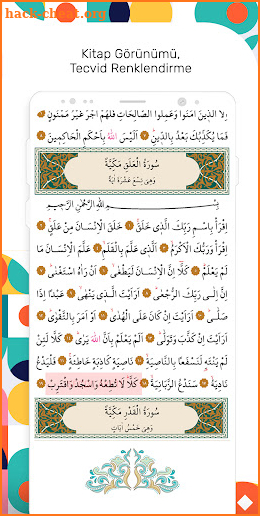 hack-cheat.org
Kitap Görünümü,
Tecvid Renklendirme
اِلَّا الَّذٖينَ اٰمَنُوا وَعَمِلُوا الصَّالِحَاتِ فَلَهُمْ اَجْرٌ غَيْرُ مَمْنُونٍ
فَمَا يُكَذِّبُكَ بَعْدُ بِالدّٖينِ اَلَيْسَ اللّٰهُ بِاَحْكَمِ الْحَاكِمٖينَ
سُورَةُ الْعَلَقِ مَكِّيَّةٌ
وَهِىَ تِسْعَ عَشْرَةَ اٰيَةً
بِسْمِ اللّٰهِ الرَّحْمٰنِ الرَّحٖيمِ
اِقْرَأْ بِاسْمِ رَبِّكَ الَّذٖى خَلَقَ خَلَقَ الْاِنْسَانَ مِنْ عَلَقٍ
اِقْرَأْ وَرَبُّكَ الْاَكْرَمُ اَلَّذٖى عَلَّمَ بِالْقَلَمِ عَلَّمَ الْاِنْسَانَ مَا
لَمْ يَعْلَمْ كَلَّا اِنَّ الْاِنْسَانَ لَيَطْغٰى اَنْ رَاٰهُ اسْتَغْنٰى
اِنَّ اِلٰى رَبِّكَ الرُّجْعٰى اَرَاَيْتَ الَّذٖى يَنْهٰى عَبْدًا اِذَا
صَلّٰى اَرَاَيْتَ اِنْ كَانَ عَلَى الْهُدٰى اَوْ اَمَرَ بِالتَّقْوٰى
اَرَاَيْتَ اِنْ كَذَّبَ وَتَوَلّٰى اَلَمْ يَعْلَمْ بِاَنَّ اللّٰهَ يَرٰى كَلَّا لَئِنْ
لَمْ يَنْتَهِ لَنَسْفَعًا بِالنَّاصِيَةِ نَاصِيَةٍ كَاذِبَةٍ خَاطِئَةٍ فَلْيَدْعُ
نَادِيَهُ سَنَدْعُ الزَّبَانِيَةَ كَلَّا لَا تُطِعْهُ وَاسْجُدْ وَاقْتَرِبْ
سُورَةُ الْقَدْرِ مَكِّيَّةٌ
وَهِىَ خَمْسُ اٰيَاتٍ
hack-cheat.org